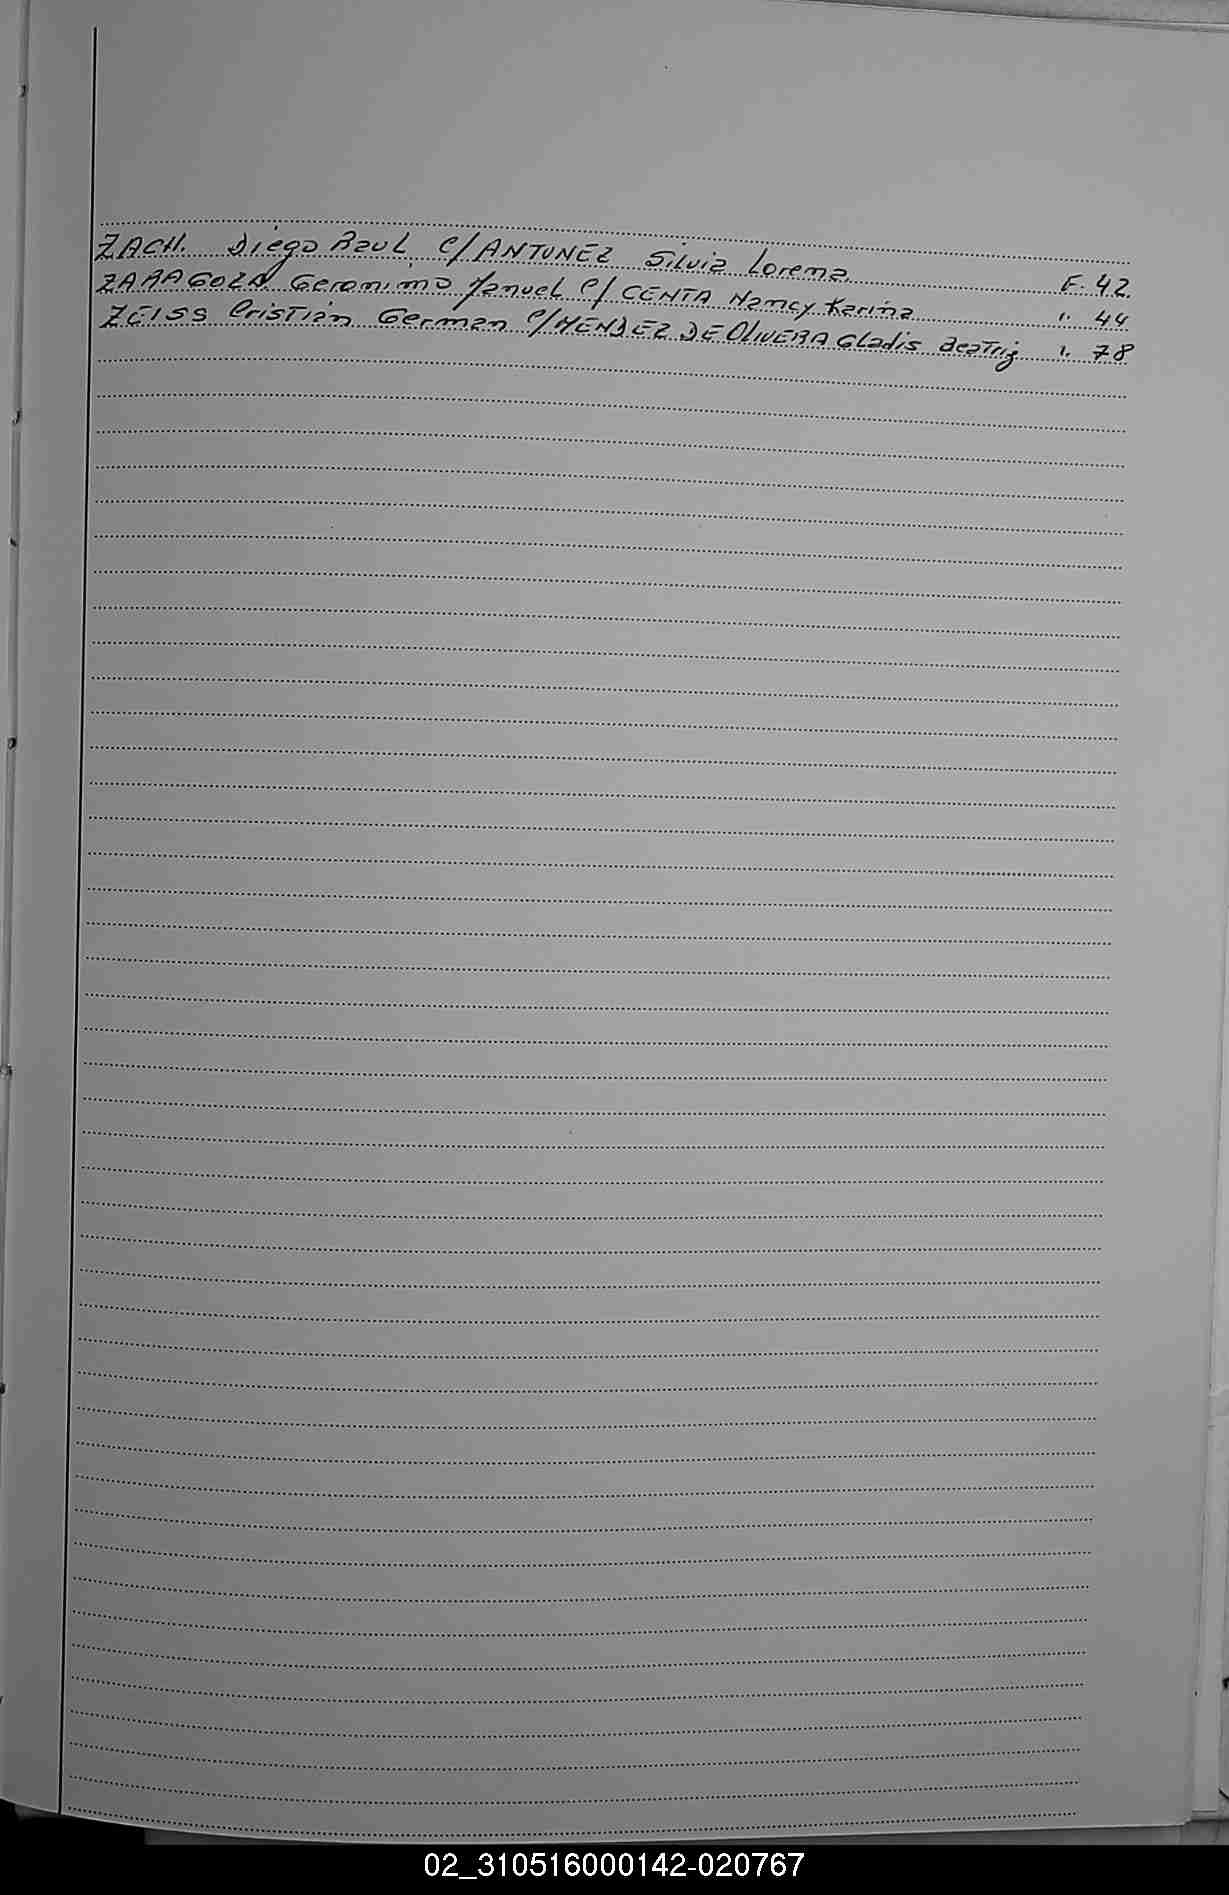 ZACH. Diego Raul C/ANTUNEZ Silvia Lorena F. 42.
ZARAGOZA Geronimo Manuel C/CENTA Nancy Karina ". 44
ZEISS Cristian German C/MENDEZ DE OLIVERA Gladis Beatriz ". 78
02_310516000142-020767